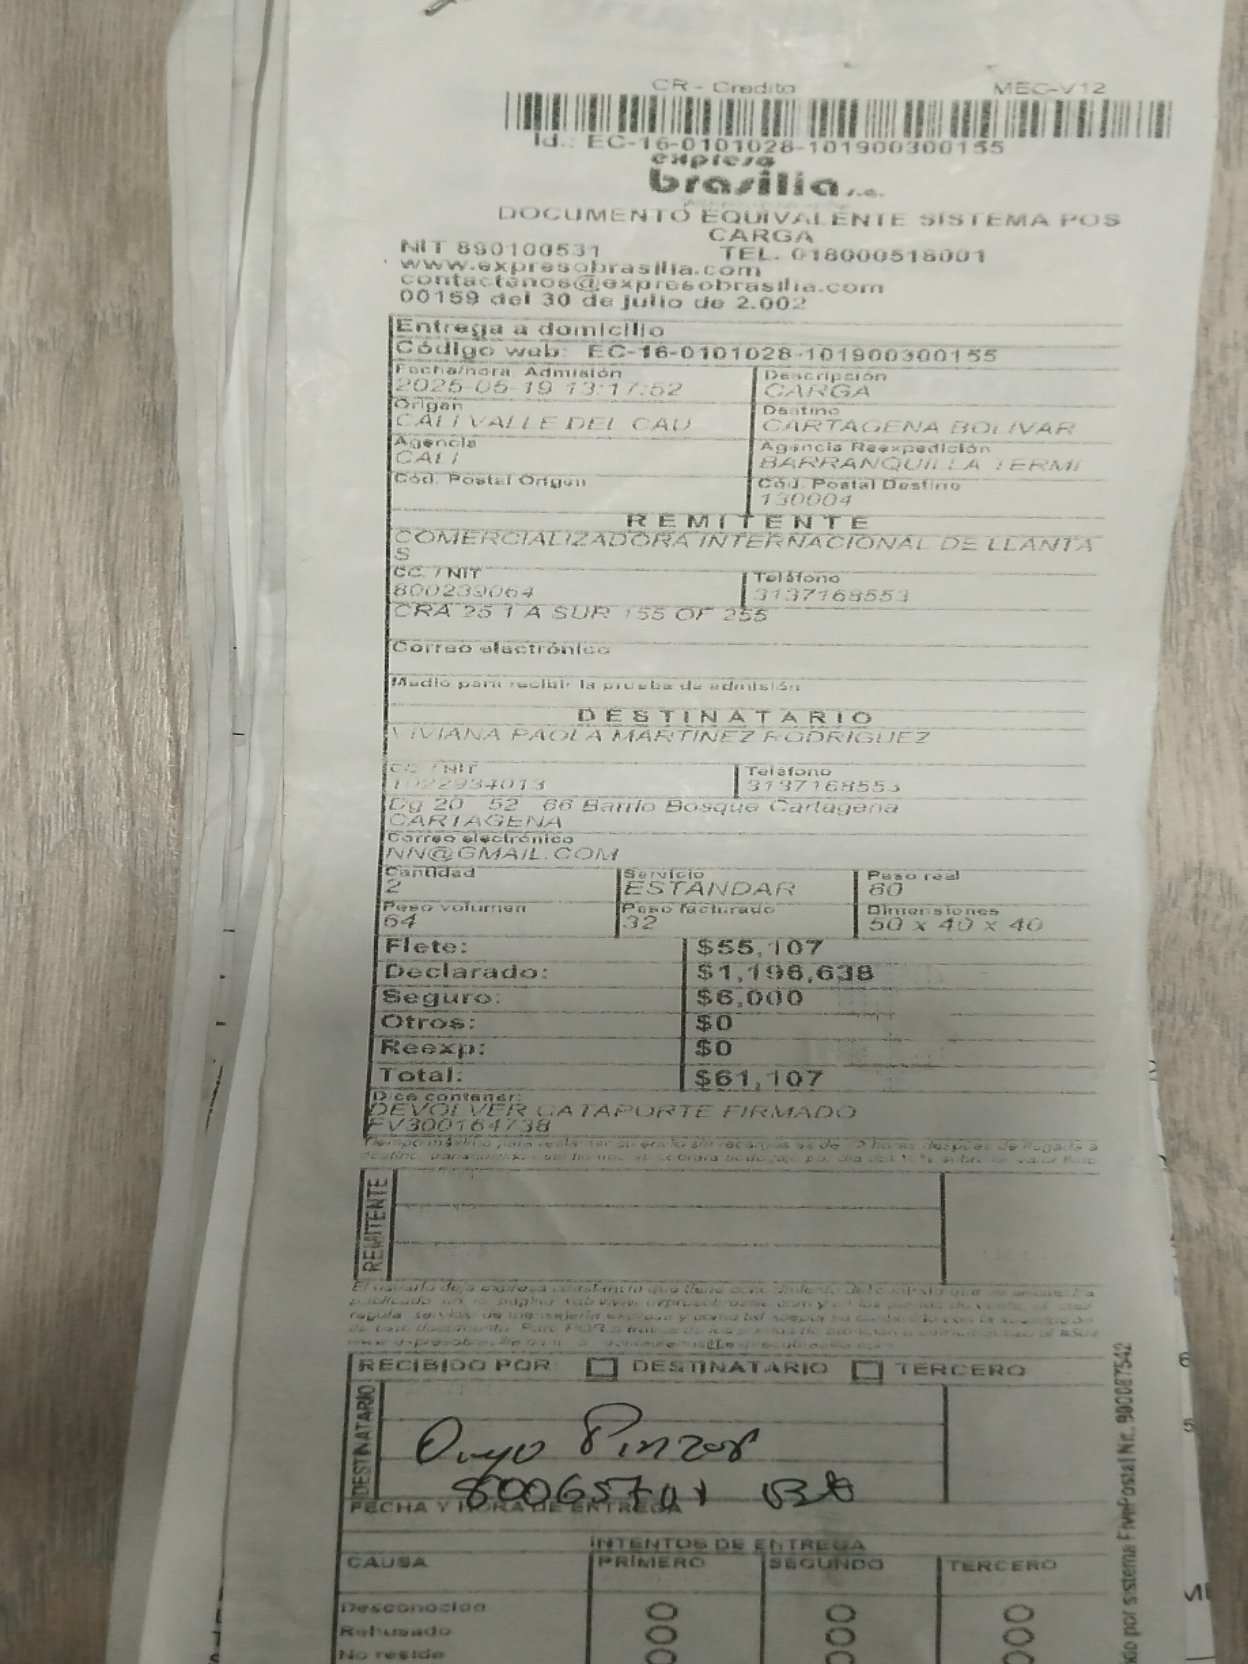 CR - Credito MEC-V12
Id.: EC-16-0101028-101900300155
expreso
brasilia s.a.
DOCUMENTO EQUIVALENTE SISTEMA POS
CARGA
NIT 890100531 TEL. 018000518001
www.expresobrasilia.com
contactenos@expresobrasilia.com
00159 del 30 de julio de 2.002
Entrega a domicilio
Código web: EC-16-0101028-101900300155
Fecha/hora. Admisión Descripción
2025-05-19 13:17:52 CARGA
Origen Destino
CALI VALLE DEL CAU CARTAGENA BOLIVAR
Agencia Agencia Reexpedición
CALI BARRANQUILLA TERMI
Cód. Postal Origen Cód. Postal Destino
130004
REMITENTE
COMERCIALIZADORA INTERNACIONAL DE LLANTA
S
CC. / NIT Teléfono
800239064 3137168553
CRA 25 1 A SUR 155 OF 255
Correo electrónico
Medio para recibir la prueba de admisión
DESTINATARIO
VIVIANA PAOLA MARTINEZ RODRIGUEZ
CC. / NIT Teléfono
1022934013 3137168553
Dg 20 52 66 Barrio Bosque Cartagena
CARTAGENA
Correo electrónico
NN@GMAIL.COM
Cantidad Servicio Peso real
2 ESTANDAR 60
Peso volumen Peso facturado Dimensiones
64 32 50 x 40 x 40
Flete: $55,107
Declarado: $1,196,638
Seguro: $6,000
Otros: $0
Reexp: $0
Total: $61,107
Dice contener:
DEVOLVER CATAPORTE FIRMADO
FV300164738
REMITENTE
RECIBIDO POR: DESTINATARIO TERCERO
DESTINATARIO
Pinzon
FECHA Y HORA DE ENTREGA
INTENTOS DE ENTREGA
CAUSA PRIMERO SEGUNDO TERCERO
Desconocido
Rehusado
No reside
por sistema FivePostal Nit. 900087542